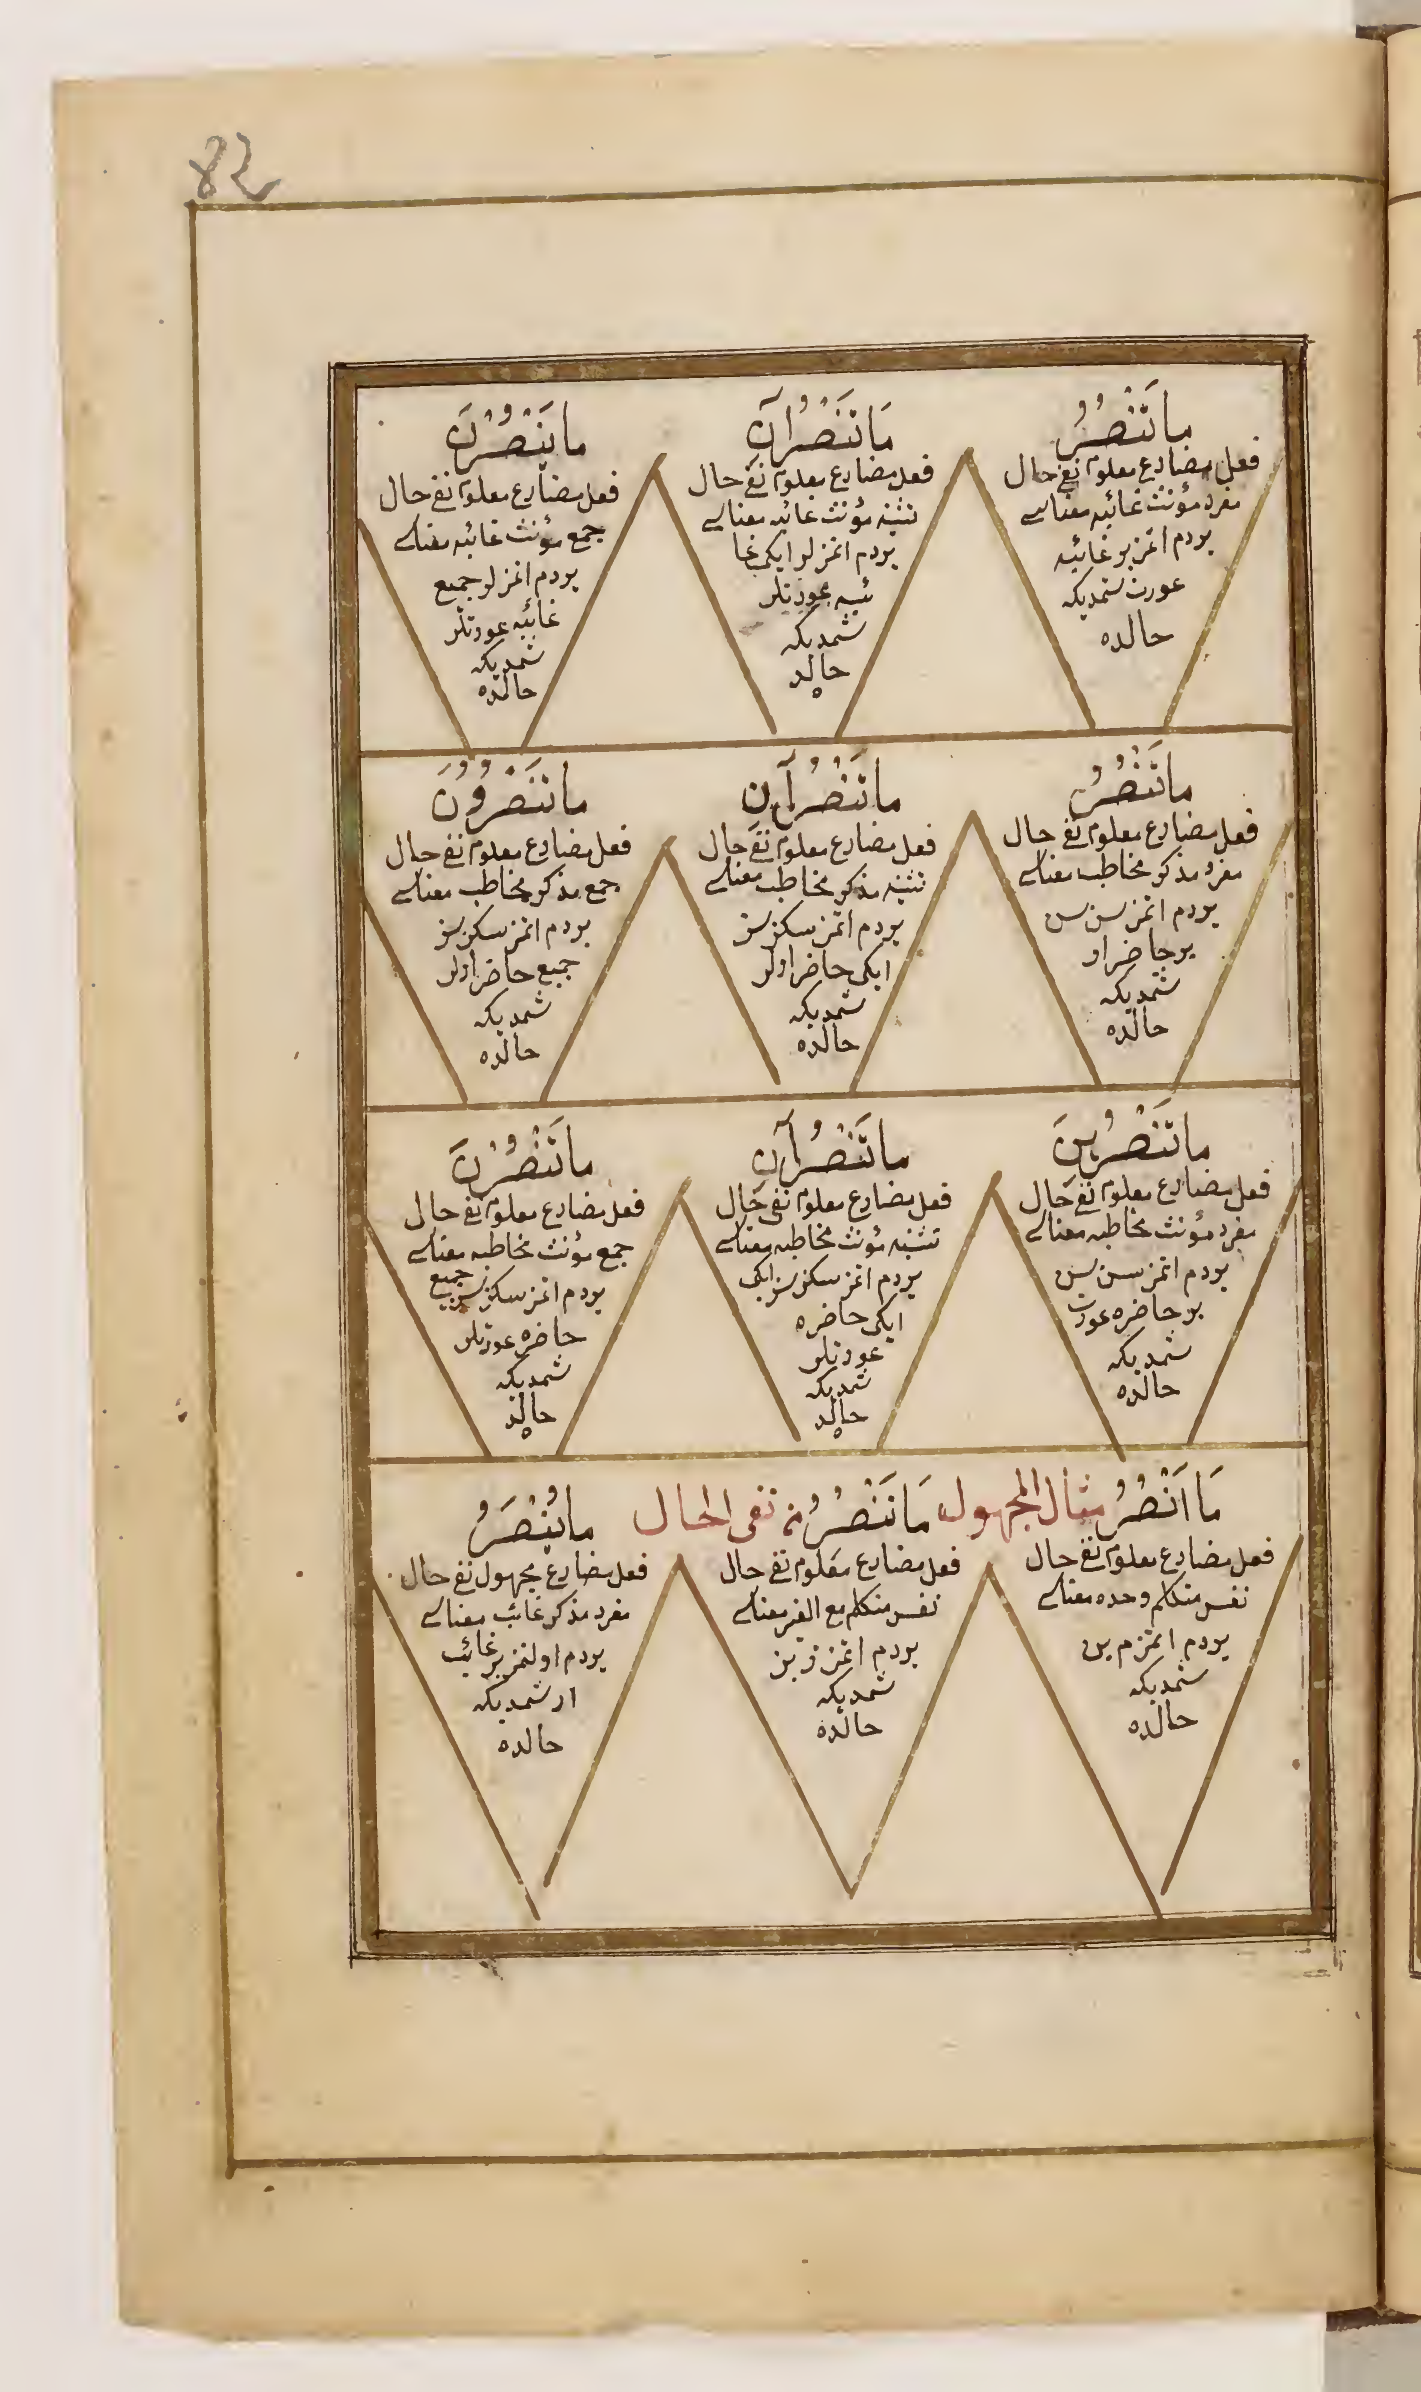 82
مَا تَنْصُرُ
فعل مضارع معلوم نفی حال
مفرد مؤنث غائبه معناسی
یردم اتمز بر غائبه
عورت شمدیکه
حالده
مَا تَنْصُرَانِ
فعل مضارع معلوم نفی حال
تثنیه مؤنث غائبه معناسی
یردم اتمز لر ایکی غا
ئبیه عورتلر
شمدیکه
حالده
مَا يَنْصُرْنَ
فعل مضارع معلوم نفی حال
جمع مؤنث غائبه معناسی
یردم اتمز لر جمیع
غائبه عورتلر
شمدیکه
حالده
مَا تَنْصُرُ
فعل مضارع معلوم نفی حال
مفرد مذکر مخاطب معناسی
یردم اتمز سن سن
بر حاضر او
شمدیکه
حالده
مَا تَنْصُرَانِ
فعل مضارع معلوم نفی حال
تثنیه مذکر مخاطب معناسی
یردم اتمز سکز سز
ایکی حاضر اولر
شمدیکه
حالده
مَا تَنْصُرُونَ
فعل مضارع معلوم نفی حال
جمع مذکر مخاطب معناسی
یردم اتمز سکز سز
جمیع حاضر اولر
شمدیکه
حالده
مَا تَنْصُرِينَ
فعل مضارع معلوم نفی حال
مفرد مؤنث مخاطبه معناسی
یردم اتمز سن سن
بر حاضره عورت
شمدیکه
حالده
مَا تَنْصُرَانِ
فعل مضارع معلوم نفی حال
تثنیه مؤنث مخاطبه معناسی
یردم اتمز سکز سز ایکی
ایکی حاضره
عورتلر
شمدیکه
حالده
مَا تَنْصُرْنَ
فعل مضارع معلوم نفی حال
جمع مؤنث مخاطبه معناسی
یردم اتمز سکز سز جمیع
حاضره عورتلر
شمدیکه
حالده
مَا اَنْصُرُ
فعل مضارع معلوم نفی حال
نفس متکلم وحده معناسی
یردم اتمزم بن
شمدیکه
حالده
مَا نَنْصُرُ
فعل مضارع معلوم نفی حال
نفس متکلم مع الغیر معناسی
یردم اتمز ز بز
شمدیکه
حالده
مثال المجهول من نفی الحال
مَا يُنْصَرُ
فعل مضارع مجهول نفی حال
مفرد مذکر غائب معناسی
یردم اولنمز بر غائب
ار شمدیکه
حالده